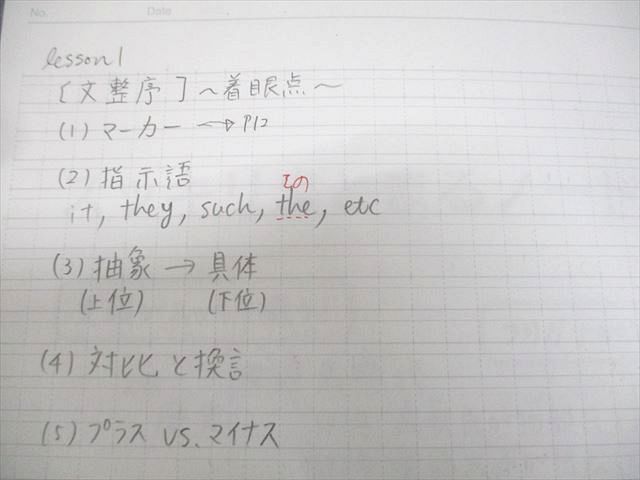 No.
Date
lesson 1
[文整序] ～着眼点～
(1) マーカー → P12
(2) 指示語
その
it, they, such, the, etc
(3) 抽象 → 具体
(上位) (下位)
(4) 対比と換言
(5) プラス vs. マイナス